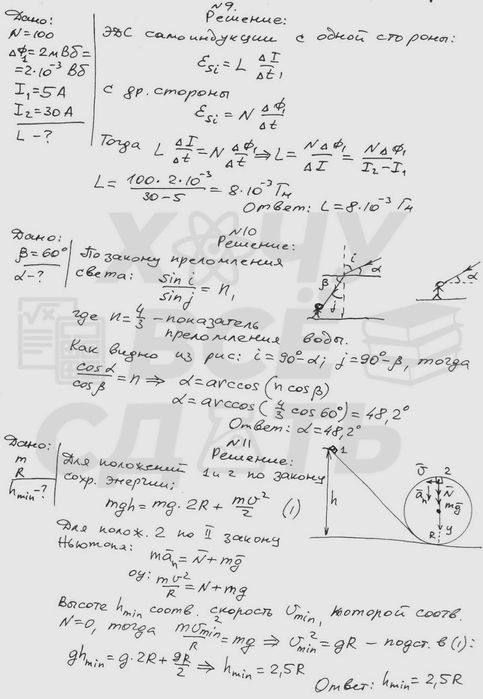 N9.
Дано:
Решение:
N=100
ΔΦ₁=2мВб=
=2·10⁻³Вб
I₁=5А
I₂=30А
L-?
ЭДС самоиндукции с одной стороны:
Ɛsi = L ΔI/Δt,
с др. стороны
Ɛsi = N ΔΦ₁/Δt
Тогда L ΔI/Δt = N ΔΦ₁/Δt ⇒ L = NΔΦ₁/ΔI = NΔΦ₁/(I₂-I₁)
L = 100·2·10⁻³/(30-5) = 8·10⁻³ Гн
Ответ: L=8·10⁻³ Гн
N10
Дано:
Решение:
β=60°
α-?
По закону преломления
света: sin i/sin j = n,
где n=4/3 - показатель
преломления воды.
Как видно из рис: i=90°-α; j=90°-β, тогда
cosα/cosβ = n ⇒ α=arccos(n cosβ)
α=arccos(4/3 cos60°)=48,2°
Ответ: α=48,2°
i
α
β
j
α
N11
Дано:
Решение:
m
R
hmin-?
Для положений 1 и 2 по закону
сохр. энергии:
mgh = mg·2R + mv²/2 (1)
Для полож. 2 по II закону
Ньютона: maₙ = N + mg
oy: mv²/R = N + mg
Высоте hmin соотв. скорость vmin, которой соотв.
N=0, тогда mv²min/R = mg ⇒ v²min = gR - подст. в (1):
ghmin = g·2R + gR/2 ⇒ hmin = 2,5R
Ответ: hmin = 2,5R
1
h
v
2
aₙ
N
mg
R
y
ХОЧУ
ВСЕ
СДАТЬ